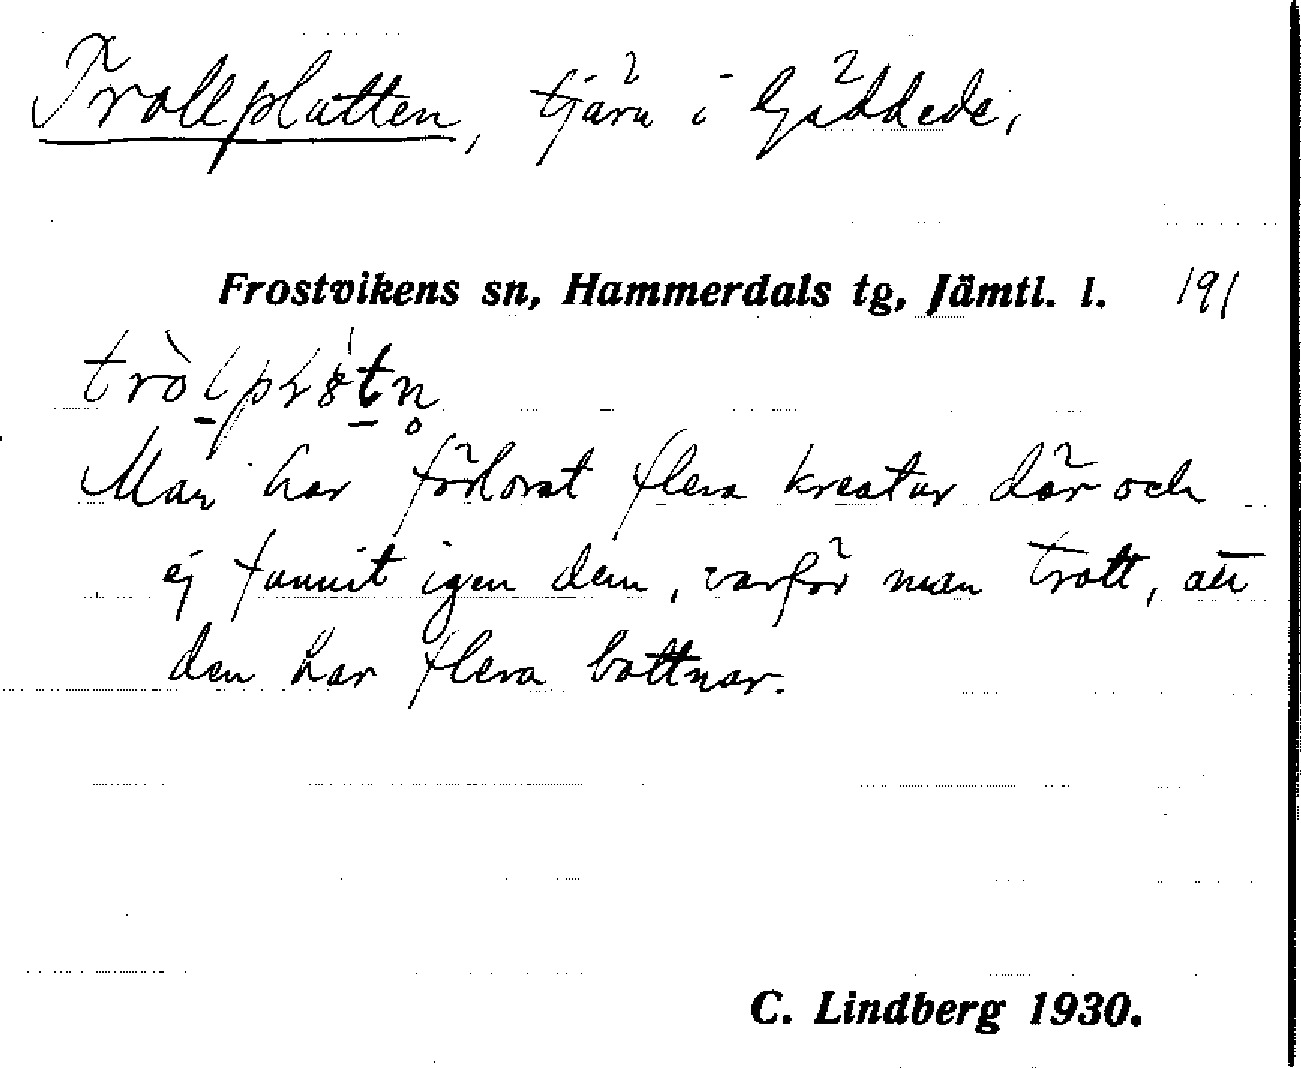 Trollplutten, tjärn i Gäddede,
Frostvikens sn, Hammerdals tg, Jämtl. l. 191
Man har förlorat flera kreatur där och
ej funnit igen dem, varför man trott, att
den har flera bottnar.
C. Lindberg 1930.